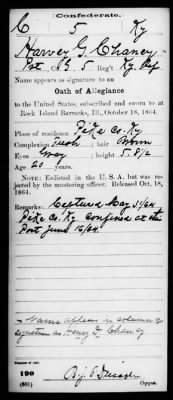 Confederate.
C 5 Ky
Harvey G. Chaney
Pvt. Co. G 5 Reg't Ky. Inf
Name appears as signature to an
Oath of Allegiance
to the United States, subscribed and sworn to at
Rock Island Barracks, Ill., October 18, 1864.
Place of residence Pike Co. Ky
Complexion Fresh ; hair Brown
Eyes Gray ; height 5. 8 1/2
Age 20 years.
NOTE: Enlisted in the U. S. A. but was rejected by the mustering officer. Released Oct. 18, 1864.
Remarks: Capture May 31/64
Pike Co. Ky. Confined at
Post June 16/64
Name appears in column of
signature as Henry G. Chaney
Number of roll:
199
(665) Copyist.